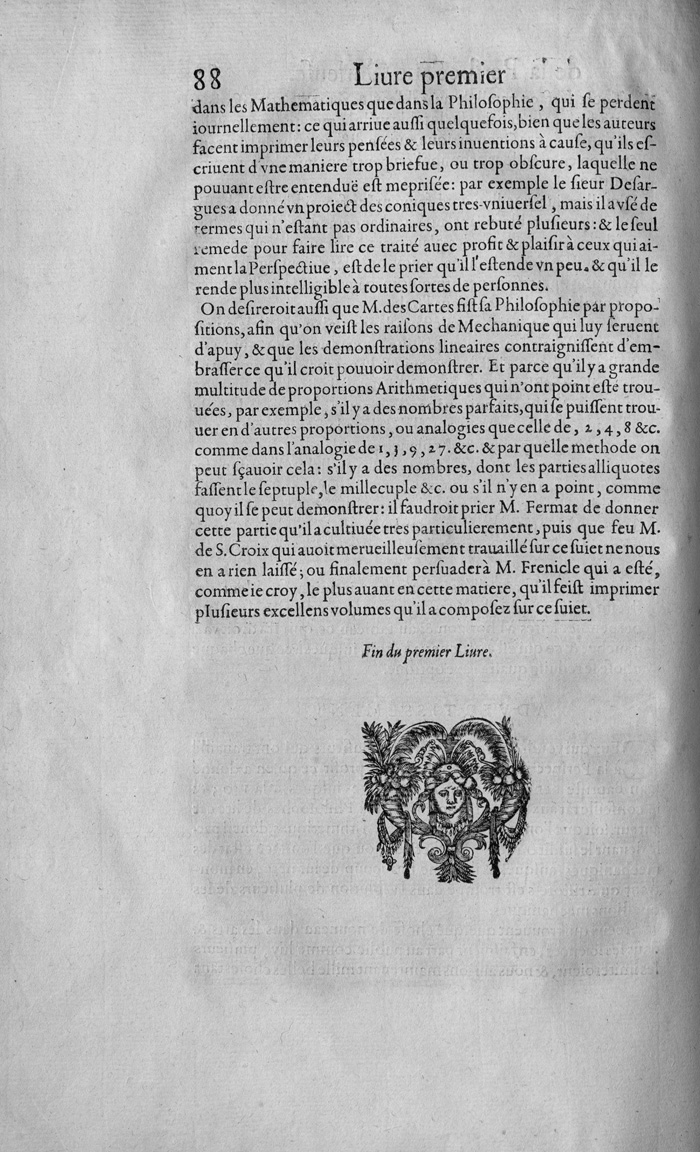 88 Liure premier
dans les Mathematiques que dans la Philoſophie, qui ſe perdent
iournellement: ce qui arriue auſſi quelquefois, bien que les auteurs
facent imprimer leurs penſées & leurs inuentions à cauſe, qu'ils eſ-
criuent d'vne maniere trop briefue, ou trop obſcure, laquelle ne
pouuant eſtre entenduë eſt mepriſée: par exemple le ſieur Deſar-
gues a donné vn proiect des coniques tres-vniuerſel, mais il a vſé de
termes qui n'eſtant pas ordinaires, ont rebuté pluſieurs: & le ſeul
remede pour faire lire ce traité auec profit & plaiſir à ceux qui ai-
ment la Perſpectiue, eſt de le prier qu'il l'eſtende vn peu. & qu'il le
rende plus intelligible à toutes ſortes de perſonnes.
On deſireroit auſſi que M. des Cartes fiſt ſa Philoſophie par propo-
ſitions, afin qu'on veiſt les raiſons de Mechanique qui luy ſeruent
d'apuy, & que les demonſtrations lineaires contraigniſſent d'em-
braſſer ce qu'il croit pouuoir demonſtrer. Et parce qu'il y a grande
multitude de proportions Arithmetiques qui n'ont point eſté trou-
uées, par exemple, s'il y a des nombres parfaits, qui ſe puiſſent trou-
uer en d'autres proportions, ou analogies que celle de, 2, 4, 8 &c.
comme dans l'analogie de 1, 3, 9, 27. &c. & par quelle methode on
peut ſçauoir cela: s'il y a des nombres, dont les parties alliquotes
faſſent le ſeptuple, le millecuple &c. ou s'il n'y en a point, comme
quoy il ſe peut demonſtrer: il faudroit prier M. Fermat de donner
cette partie qu'il a cultiuée tres particulierement, puis que feu M.
de S. Croix qui auoit merueilleuſement trauaillé ſur ce ſuiet ne nous
en a rien laiſſé; ou finalement perſuader à M. Frenicle qui a eſté,
comme ie croy, le plus auant en cette matiere, qu'il feiſt imprimer
pluſieurs excellens volumes qu'il a compoſez ſur ce ſuiet.
Fin du premier Liure.